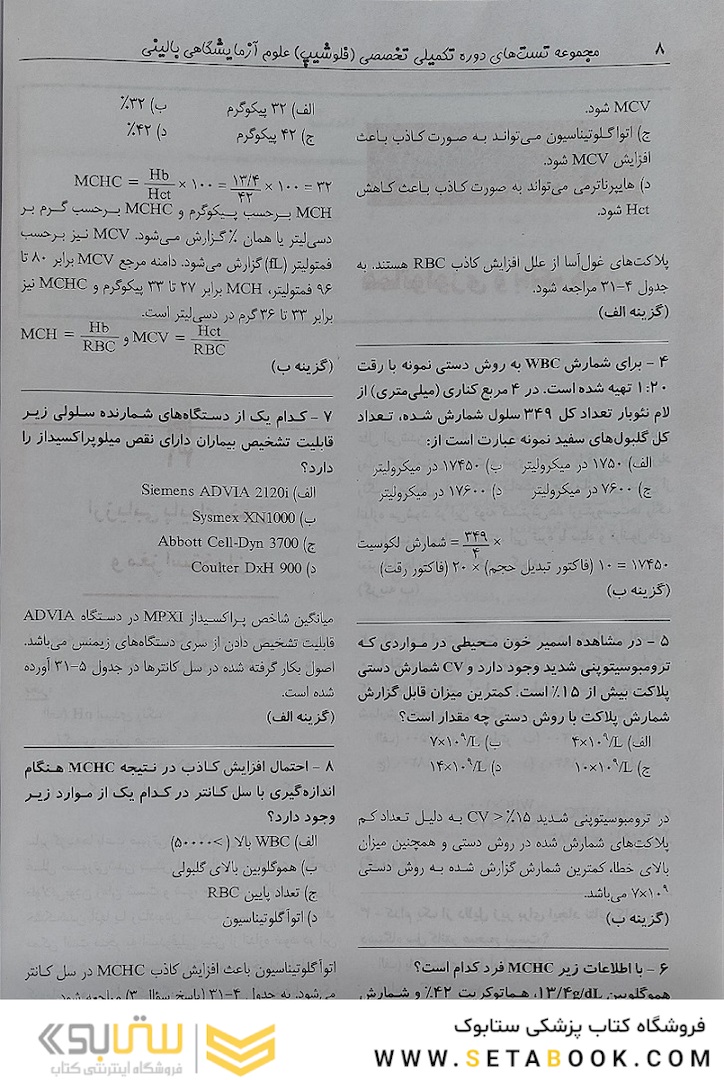 ۸ مجموعه تست‌های دوره تکمیلی تخصصی (فلوشیپ) علوم آزمایشگاهی بالینی
MCV شود.
ج) اتواگلوتیناسیون می‌تواند به صورت کاذب باعث
افزایش MCV شود.
د) هایپرناترمی می‌تواند به صورت کاذب باعث کاهش
Hct شود.
پلاکت‌های غول‌آسا از علل افزایش کاذب RBC هستند. به
جدول ۴-۳۱ مراجعه شود.
(گزینه الف)
۴ - برای شمارش WBC به روش دستی نمونه با رقت
۱:۲۰ تهیه شده است. در ۴ مربع کناری (میلی‌متری) از
لام نئوبار تعداد کل ۳۴۹ سلول شمارش شده، تعداد
کل گلبول‌های سفید نمونه عبارت است از:
الف) ۱۷۵۰ در میکرولیتر ب) ۱۷۴۵۰ در میکرولیتر
ج) ۷۶۰۰ در میکرولیتر د) ۱۷۶۰۰ در میکرولیتر
شمارش لکوسیت = ۳۴۹/۴ ×
(فاکتور رقت) ۲۰ × (فاکتور تبدیل حجم) ۱۰ = ۱۷۴۵۰
(گزینه ب)
۵ - در مشاهده اسمیر خون محیطی در مواردی که
ترومبوسیتوپنی شدید وجود دارد و CV شمارش دستی
پلاکت بیش از ۱۵٪ است. کمترین میزان قابل گزارش
شمارش پلاکت با روش دستی چه مقدار است؟
الف) ۴×۱۰⁹/L ب) ۷×۱۰⁹/L
ج) ۱۰×۱۰⁹/L د) ۱۴×۱۰⁹/L
در ترومبوسیتوپنی شدید CV > ۱۵٪ به دلیل تعداد کم
پلاکت‌های شمارش شده در روش دستی و همچنین میزان
بالای خطا، کمترین شمارش گزارش شده به روش دستی
۷×۱۰⁹ می‌باشد.
(گزینه ب)
۶ - با اطلاعات زیر MCHC فرد کدام است؟
هموگلوبین ۱۳/۴g/dL، هماتوکریت ۴۲٪ و شمارش
الف) ۳۲ پیکوگرم ب) ۳۲٪
ج) ۴۲ پیکوگرم د) ۴۲٪
MCHC = Hb/Hct × ۱۰۰ = ۱۳/۴/۴۲ × ۱۰۰ = ۳۲
MCH برحسب پیکوگرم و MCHC برحسب گرم بر
دسی‌لیتر یا همان ٪ گزارش می‌شود. MCV نیز برحسب
فمتولیتر (fL) گزارش می‌شود. دامنه مرجع MCV برابر ۸۰ تا
۹۶ فمتولیتر، MCH برابر ۲۷ تا ۳۳ پیکوگرم و MCHC نیز
برابر ۳۳ تا ۳۶ گرم در دسی‌لیتر است.
MCH = Hb/RBC و MCV = Hct/RBC
(گزینه ب)
۷ - کدام یک از دستگاه‌های شمارنده سلولی زیر
قابلیت تشخیص بیماران دارای نقص میلوپراکسیداز را
دارد؟
الف) Siemens ADVIA 2120i
ب) Sysmex XN1000
ج) Abbott Cell-Dyn 3700
د) Coulter DxH 900
میانگین شاخص پراکسیداز MPXI در دستگاه ADVIA
قابلیت تشخیص دادن از سری دستگاه‌های زیمنس می‌باشد.
اصول بکار گرفته شده در سل کانترها در جدول ۵-۳۱ آورده
شده است.
(گزینه الف)
۸ - احتمال افزایش کاذب در نتیجه MCHC هنگام
اندازه‌گیری با سل کانتر در کدام یک از موارد زیر
وجود دارد؟
الف) WBC بالا (>۵۰۰۰۰)
ب) هموگلوبین بالای گلبولی
ج) تعداد پایین RBC
د) اتوآگلوتیناسیون
اتوآگلوتیناسیون باعث افزایش کاذب MCHC در سل کانتر
می‌شود. به جدول ۴-۳۱ (پاسخ سؤال ۳) مراجعه شود.
ستابوک
فروشگاه اینترنتی کتاب
فروشگاه کتاب پزشکی ستابوک
WWW.SETABOOK.COM